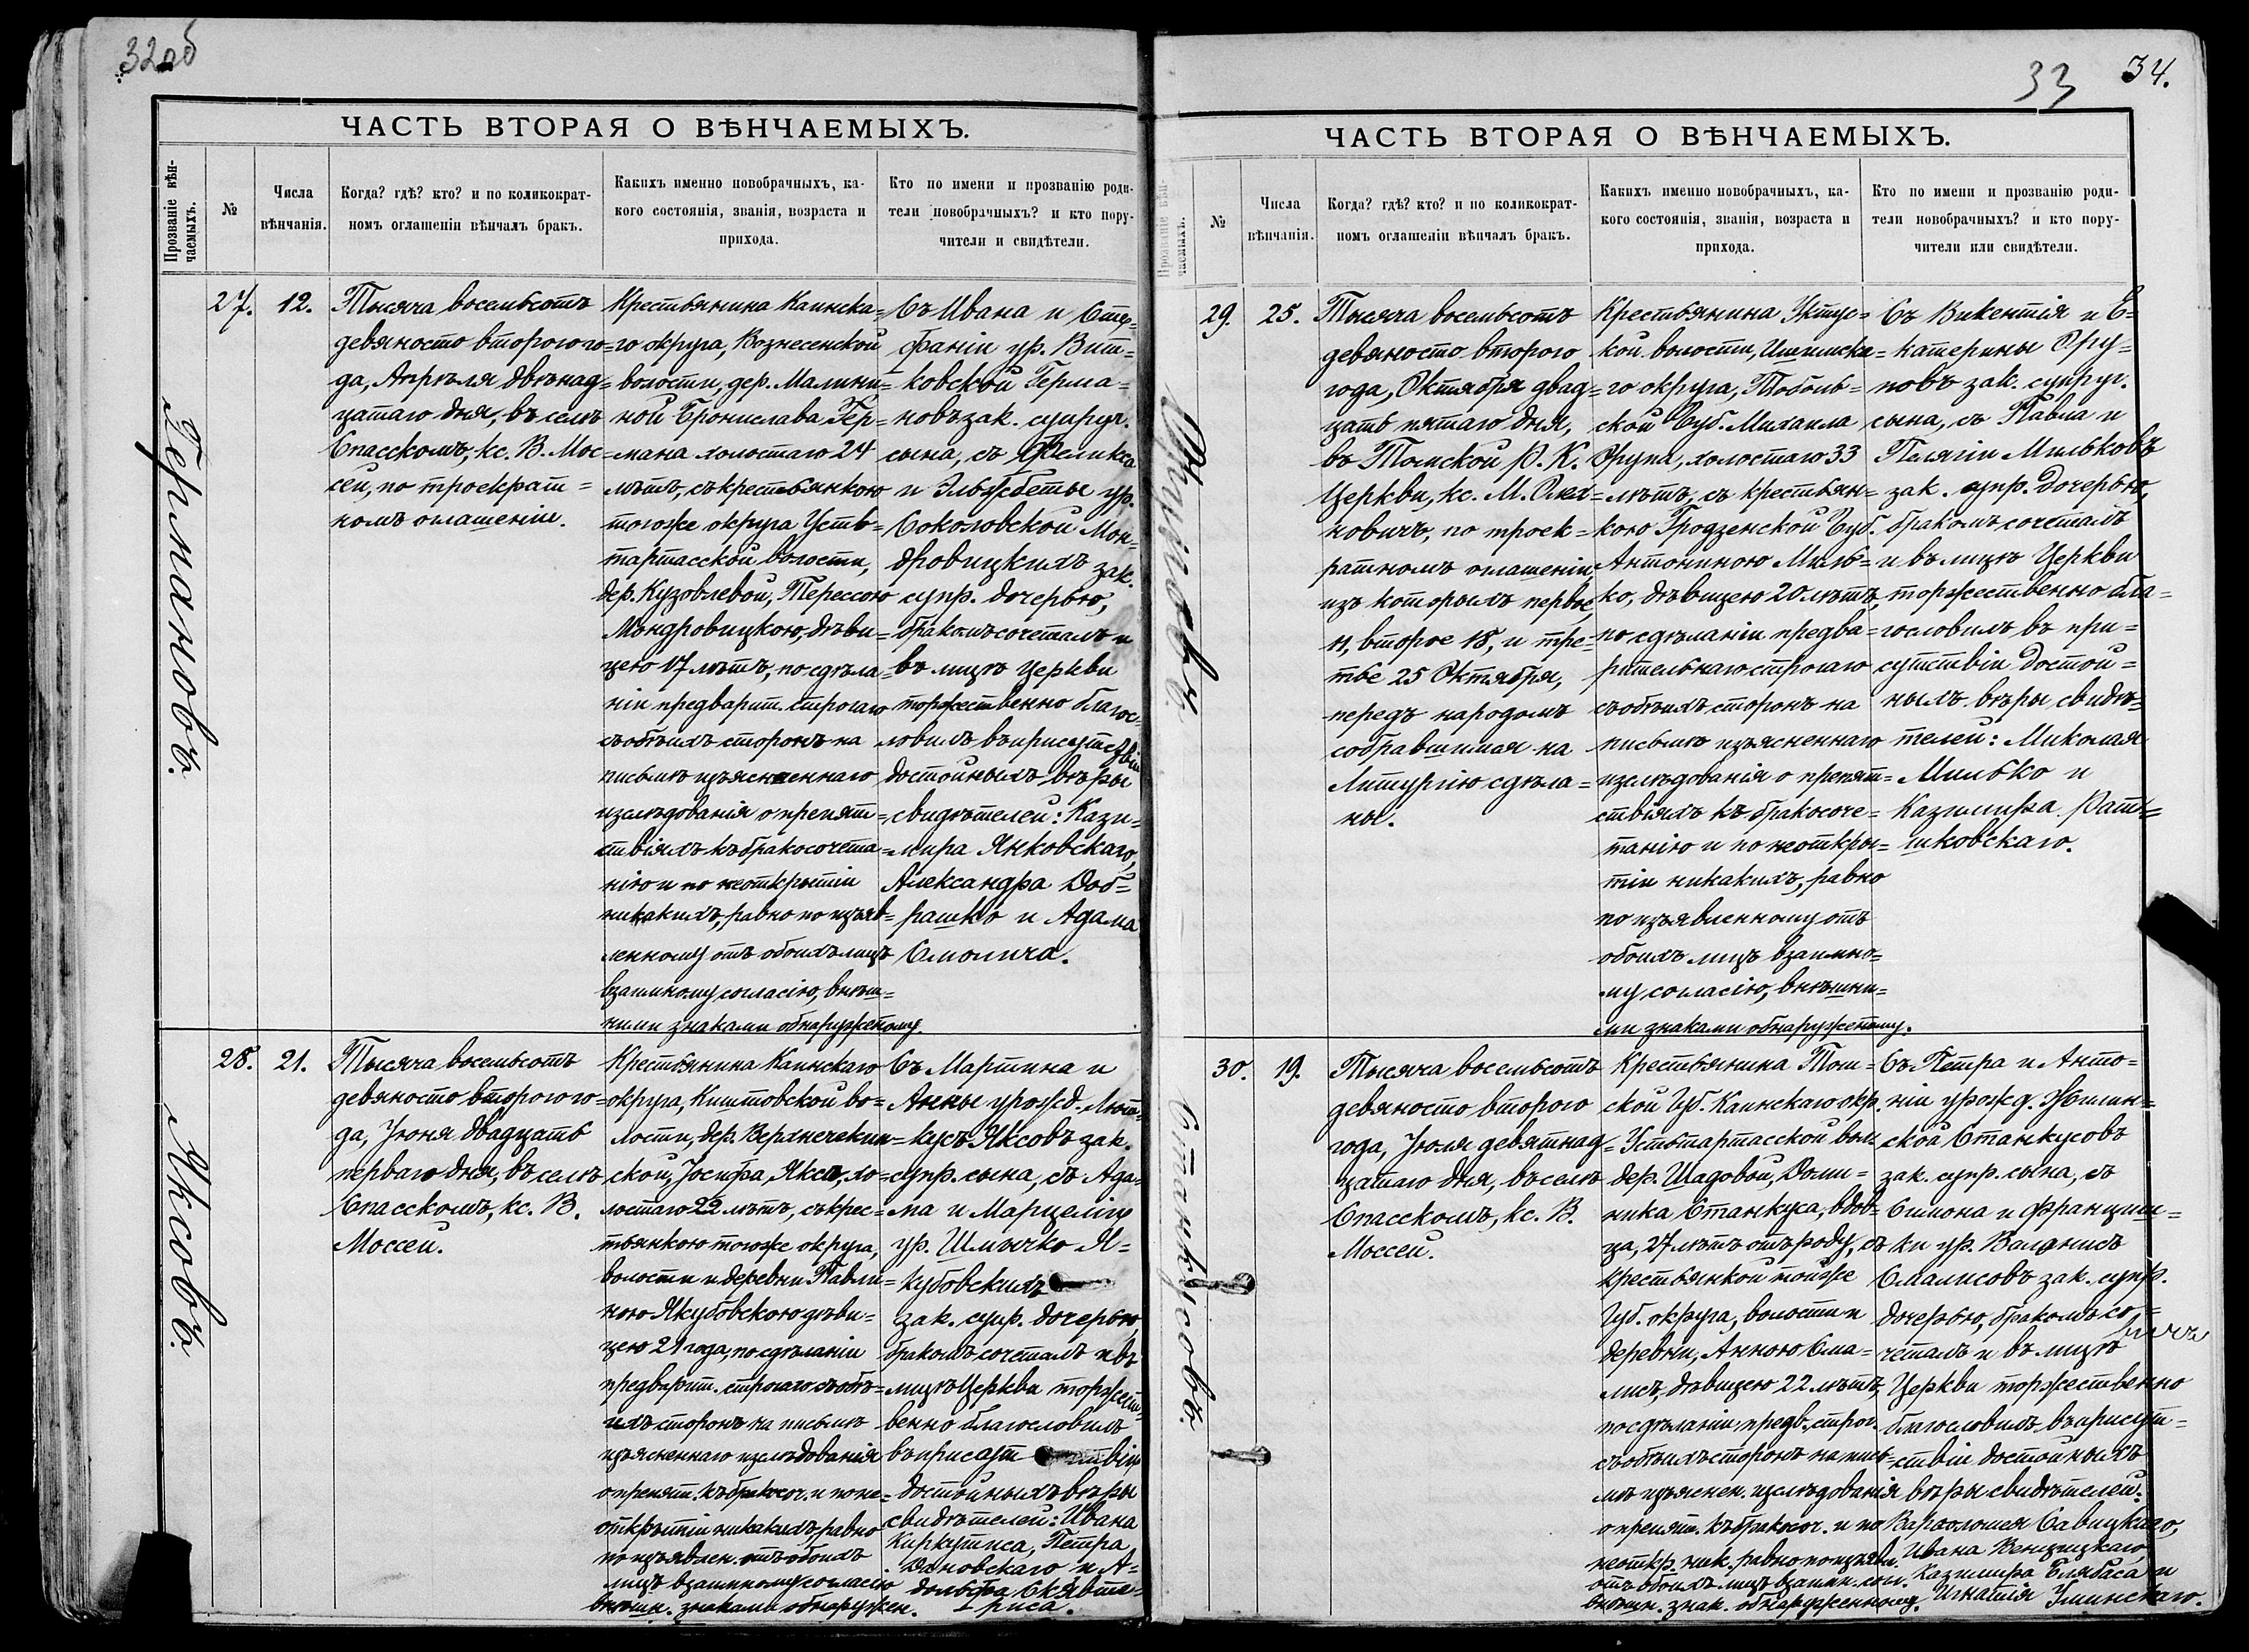 32 об
ЧАСТЬ ВТОРАЯ О ВѢНЧАЕМЫХЪ.
Прозваніе вѣн-
чаемыхъ.
№
Числа
вѣнчанія.
Когда? гдѣ? кто? и по коликократ-
номъ оглашеніи вѣнчалъ бракъ.
Какихъ именно новобрачныхъ, ка-
кого состоянія, званія, возраста и
прихода.
Кто по имени и прозванію роди-
тели новобрачныхъ? и кто пору-
чители и свидѣтели.
Германовъ.
27.
12.
Тысяча восемьсотъ
девяносто второго го=
да, Апрѣля двѣнад=
цатаго дня, въ селѣ
Спасскомъ, кс. В. Мос=
сеи, по троекрат=
номъ оглашеніи.
Крестьянина Каинска=
го округа, Вознесенской
волости, дер. Малини=
ной Бронислава Гер=
мана холостаго 24
лѣтъ, съ крестьянкою
тогоже округа Усть=
тартасской волости,
дер. Кузовлевой, Терессою
Мондровицкою, дѣви=
цею 17 лѣтъ, по сдѣла=
ніи предварит. строгаго
съ обѣихъ сторонъ на
письмѣ изъясненнаго
изслѣдованія о препят=
ствіяхъ къ бракосочета=
нію и по неоткрытіи
никакихъ, равно по изъяв=
ленному отъ обоихъ лицъ
взаимному согласію, внѣш=
ними знаками обнаруженому.
Съ Ивана и Сте=
фаніи ур. Вит=
ковской Герма=
новъ зак. супруг.
сына, съ Феликса
и Эльжбеты ур.
Соколовской Мон=
дровицкихъ зак.
супр. дочерью,
бракомъ сочеталъ и
въ лицѣ Церкви
торжественно благос=
ловилъ въ присутствіи
достойныхъ вѣры
свидѣтелей: Кази=
мира Янковскаго,
Александра Доб=
рашко и Адама
Смолича.
Яксовъ.
28.
21.
Тысяча восемьсотъ
девяносто второго го=
да, Іюня двадцать
перваго дня, въ селѣ
Спасскомъ, кс. В.
Моссеи.
Крестьянина Каинскаго
округа, Киштовской во=
лости, дер. Верхнечекин=
ской, Іосифа, Якса, хо=
лостаго 22 лѣтъ, съ крес=
тьянкою тогоже округа,
волости и деревни Павли=
ною Якубовскою дѣви=
цею 21 года, по сдѣланіи
предварит. строгаго съ обѣ=
ихъ сторонъ на письмѣ
изъясненнаго изслѣдованія
о препят. къ бракосоч. и по не=
открытіи никакихъ, равно
по изъявлен. отъ обоихъ
лицъ взаимному согласію
внѣшн. знаками обнаружен.
Съ Мартина и
Анны урожд.
Яксовъ зак.
супр. сына, съ Ада=
ма и Марцеліи
ур. Шлычко Я=
кубовскихъ
зак. супр. дочерью,
бракомъ сочеталъ и въ
лицѣ Церкви торжест=
венно благословилъ
въ присутствіи
достойныхъ вѣры
свидѣтелей: Ивана
Киркутиса, Петра
Яновскаго и А=
дольфа
33
34.
ЧАСТЬ ВТОРАЯ О ВѢНЧАЕМЫХЪ.
Прозваніе вѣн-
чаемыхъ.
№
Числа
вѣнчанія.
Когда? гдѣ? кто? и по коликократ-
номъ оглашеніи вѣнчалъ бракъ.
Какихъ именно новобрачныхъ, ка-
кого состоянія, званія, возраста и
прихода.
Кто по имени и прозванію роди-
тели новобрачныхъ? и кто пору-
чители или свидѣтели.
29.
25.
Тысяча восемьсотъ
девяносто второго
года, Октября двад=
цать пятаго дня,
въ Томской Р. К.
Церкви, кс. М. Олех=
новичъ, по троек=
ратномъ оглашеніи,
изъ которыхъ первое
11, второе 18, и тре=
тье 25 Октября,
передъ народомъ
собравшимся на
Литургію сдѣла=
ны.
Крестьянина Уктус=
кой волости, Ишимска=
го округа, Тоболь=
ской Губ. Михаила
холостаго 33
лѣтъ, съ крестьян=
кою Гродзенской Губ.
Антониною Миль=
ко, дѣвицею 20 лѣтъ,
по сдѣланіи предва=
рительнаго строгаго
съ обѣихъ сторонъ на
письмѣ изъясненнаго
изслѣдованія о препят=
ствіяхъ къ бракосоче=
танію и по неоткры=
тіи никакихъ, равно
по изъявленному отъ
обоихъ лицъ взаимно=
му согласію, внѣшни=
ми знаками обнаруженому.
Съ Викентія и Е=
катерины
зак. супруг.
сына, съ Павла и
Пелягіи Мильковъ
зак. супр. дочерью,
бракомъ сочеталъ
и въ лицѣ Церкви
торжественно бла=
гословилъ въ при=
сутствіи достой=
ныхъ вѣры свидѣ=
телей: Миколая
Милько и
Казимира Рат=
шковскаго.
Станкусовъ.
30.
19.
Тысяча восемьсотъ
девяносто второго
года, Іюля девятнад=
цатаго дня, въ селѣ
Спасскомъ, кс. В.
Моссеи.
Крестьянина Том=
ской Губ. Каинскаго окр.
Устьтартасской вол.
дер. Шадовой, Доми=
ника Станкуса, вдов=
ца, 27 лѣтъ отъ роду, съ
крестьянкой тойже
Губ. округа, волости и
деревни, Анною Сма=
лисъ, дѣвицею 22 лѣтъ,
по сдѣланіи предв. строг.
съ обѣихъ сторонъ на пись=
мѣ изъяснен. изслѣдованія
о препят. къ бракосоч. и по
неоткр. ник. равно по изъявл.
отъ обоихъ лицъ взаимн. сог.
внѣшн. знак. обнаруженному.
Съ Петра и Анто=
ніи урожд.
Станкусовъ
зак. супр. сына, съ
Симона и Францишь=
ки ур. Валднисъ
Смалисовъ зак. супр.
дочерью, бракомъ со=
четалъ и въ лицѣ
Церкви торжественно
благословилъ въ присут=
ствіи достойныхъ
вѣры свидѣтелей:
Варфоломея Савицкаго,
Ивана Веницицкаго,
Казимира Блябаса и
Игнатія Уминскаго.